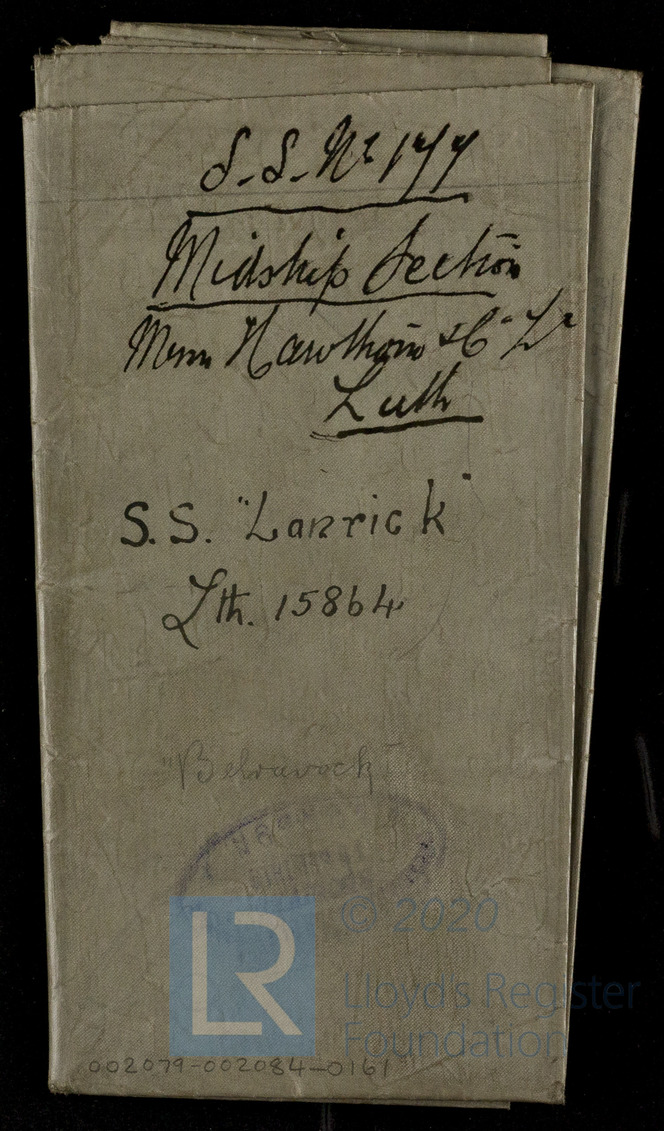 S.S. No 177
Midship Section
Messrs Hawthorn & Co Ld
Leith
S.S. "Lanrick"
Lth. 15864
LR
© 2020
Lloyd's Register
Foundation
002079-002084-0161